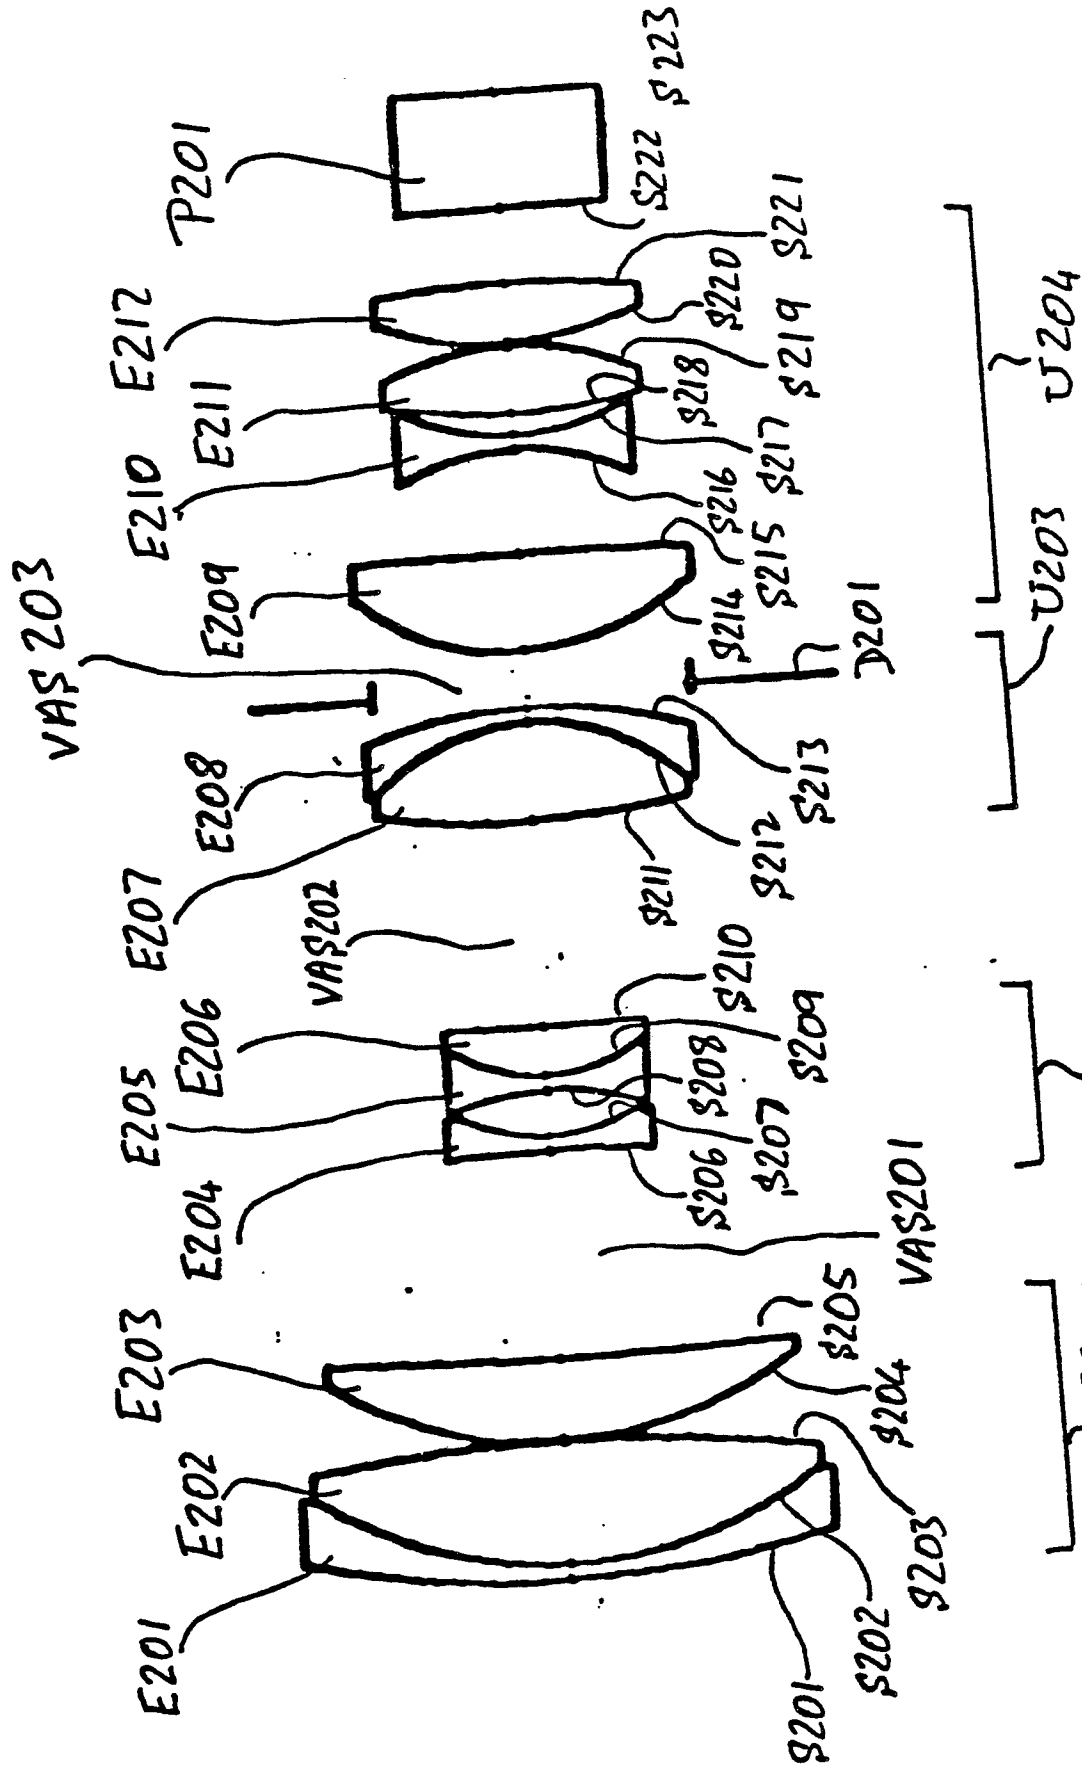 E201
E202
E203
E204
E205
E206
VAS202
E207
E208
VAS203
E209
E210
E211
E212
P201
S201
S202
S203
S204
S205
VAS201
S206
S207
S208
S209
S210
S211
S212
S213
D201
S214
S215
S216
S217
S218
S219
S220
S221
S222
S223
U203
U204